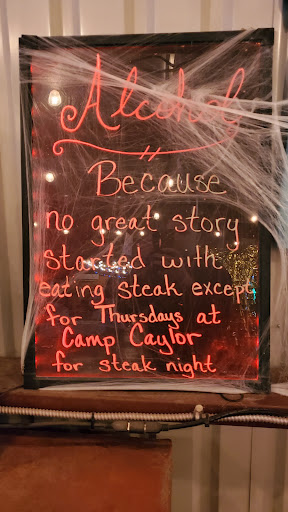 Alcohol
Because
no great story
started with
eating steak except
for Thursdays at
Camp Caylor
for steak night